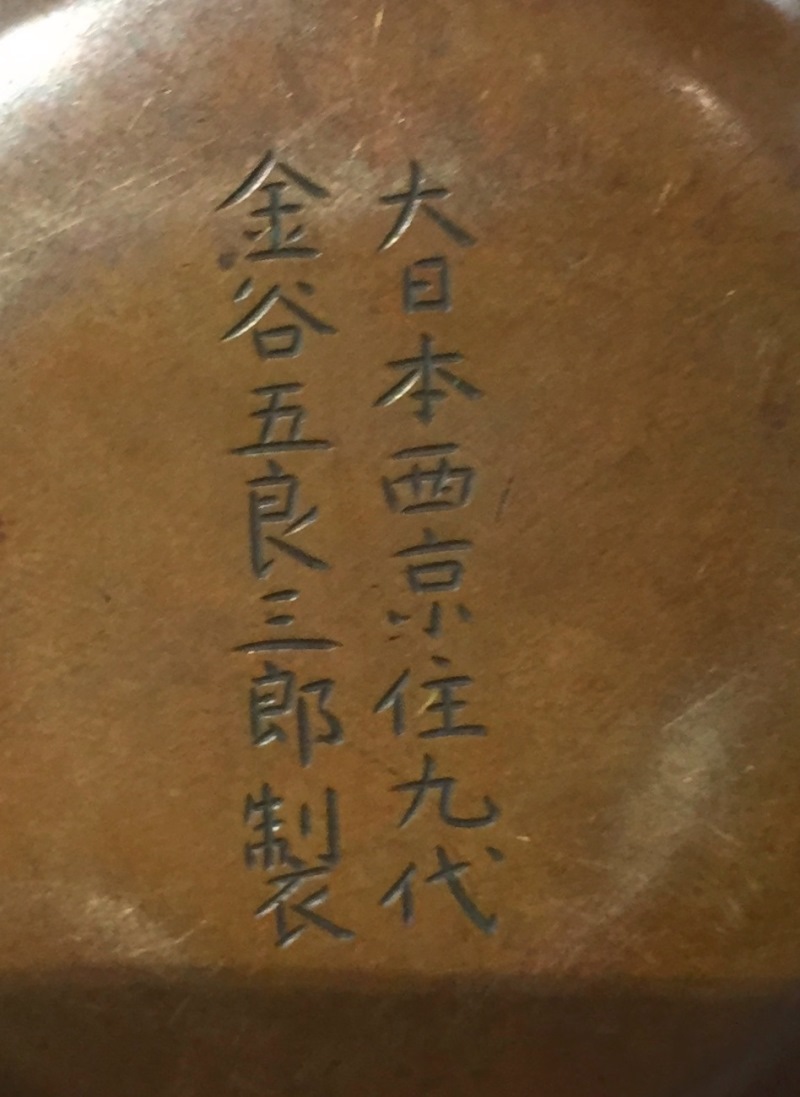 大日本西京住九代
金谷五良三郎製